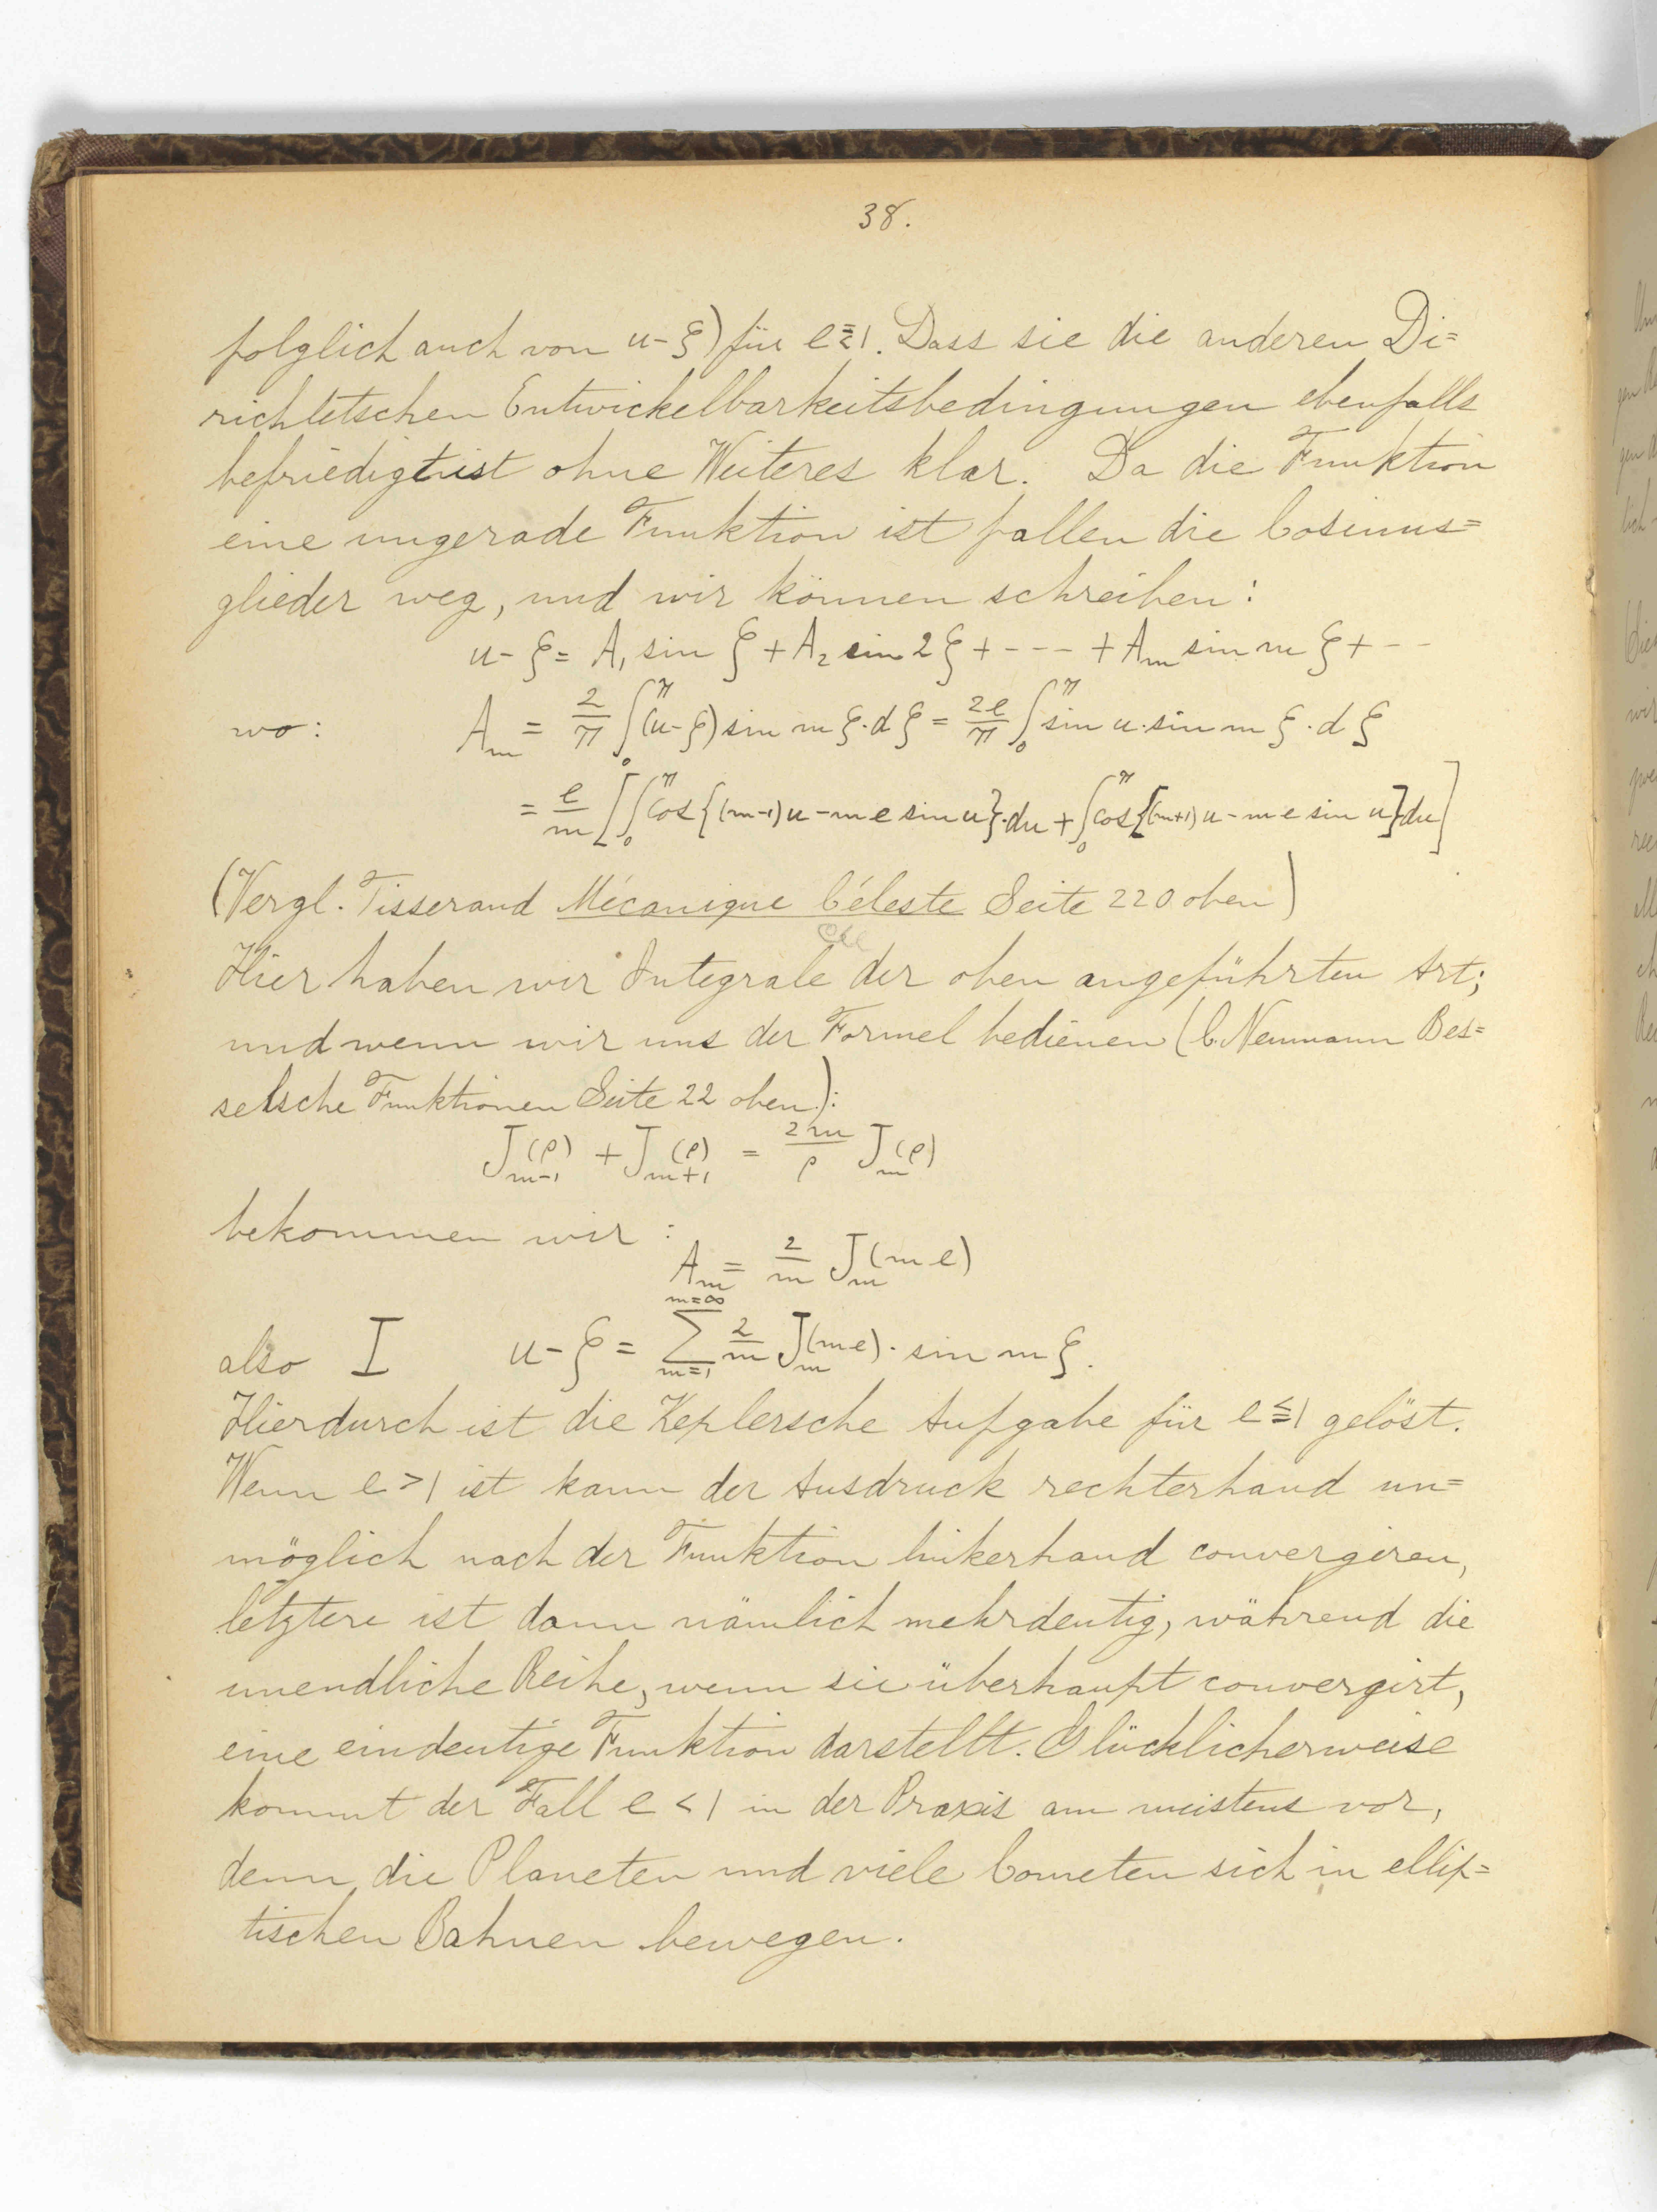 38.
folglich auch von u-ξ) für e≦1. Dass sie die anderen Di=
richletschen Entwickelbarkeitsbedingungen ebenfalls
befriedigt ist ohne Weiteres klar. Da die Funktion
eine ungerade Funktion ist fallen die Cosinus=
glieder weg, und wir können schreiben:
u-ξ = A₁ sin ξ + A₂ sin 2ξ + - - - + Aₘ sin m ξ + - -
wo: Aₘ = 2/π ∫₀^π (u-ξ) sin m ξ·dξ = 2e/π ∫₀^π sin u·sin m ξ·dξ
= e/m [∫₀^π cos{(m-1)u - m e sin u}·du + ∫₀^π cos{(m+1)u - m e sin u}du]
(Vergl. Tisserand Mécanique Céleste Seite 220 oben)
Hier haben wir Integrale der oben angeführten Art;
und wenn wir uns der Formel bedienen (C. Neumann Bes=
selsche Funktionen Seite 22 oben):
J_{m-1}(ρ) + J_{m+1}(ρ) = 2m/ρ J_m(ρ)
bekommen wir:
Aₘ = 2/m J_m(m e)
also I u-ξ = ∑_{m=1}^{m=∞} 2/m J_m(m e)· sin m ξ.
Hierdurch ist die Keplersche Aufgabe für e≦1 gelöst.
Wenn e>1 ist kann der Ausdruck rechterhand un=
möglich nach der Funktion linkerhand convergiren,
letztere ist dann nämlich mehrdeutig, während die
unendliche Reihe, wenn sie überhaupt convergirt,
eine eindeutige Funktion darstellt. Glücklicherweise
kommt der Fall e<1 in der Praxis am meistens vor,
denn die Planeten und viele Cometen sich in ellip=
tischen Bahnen bewegen.